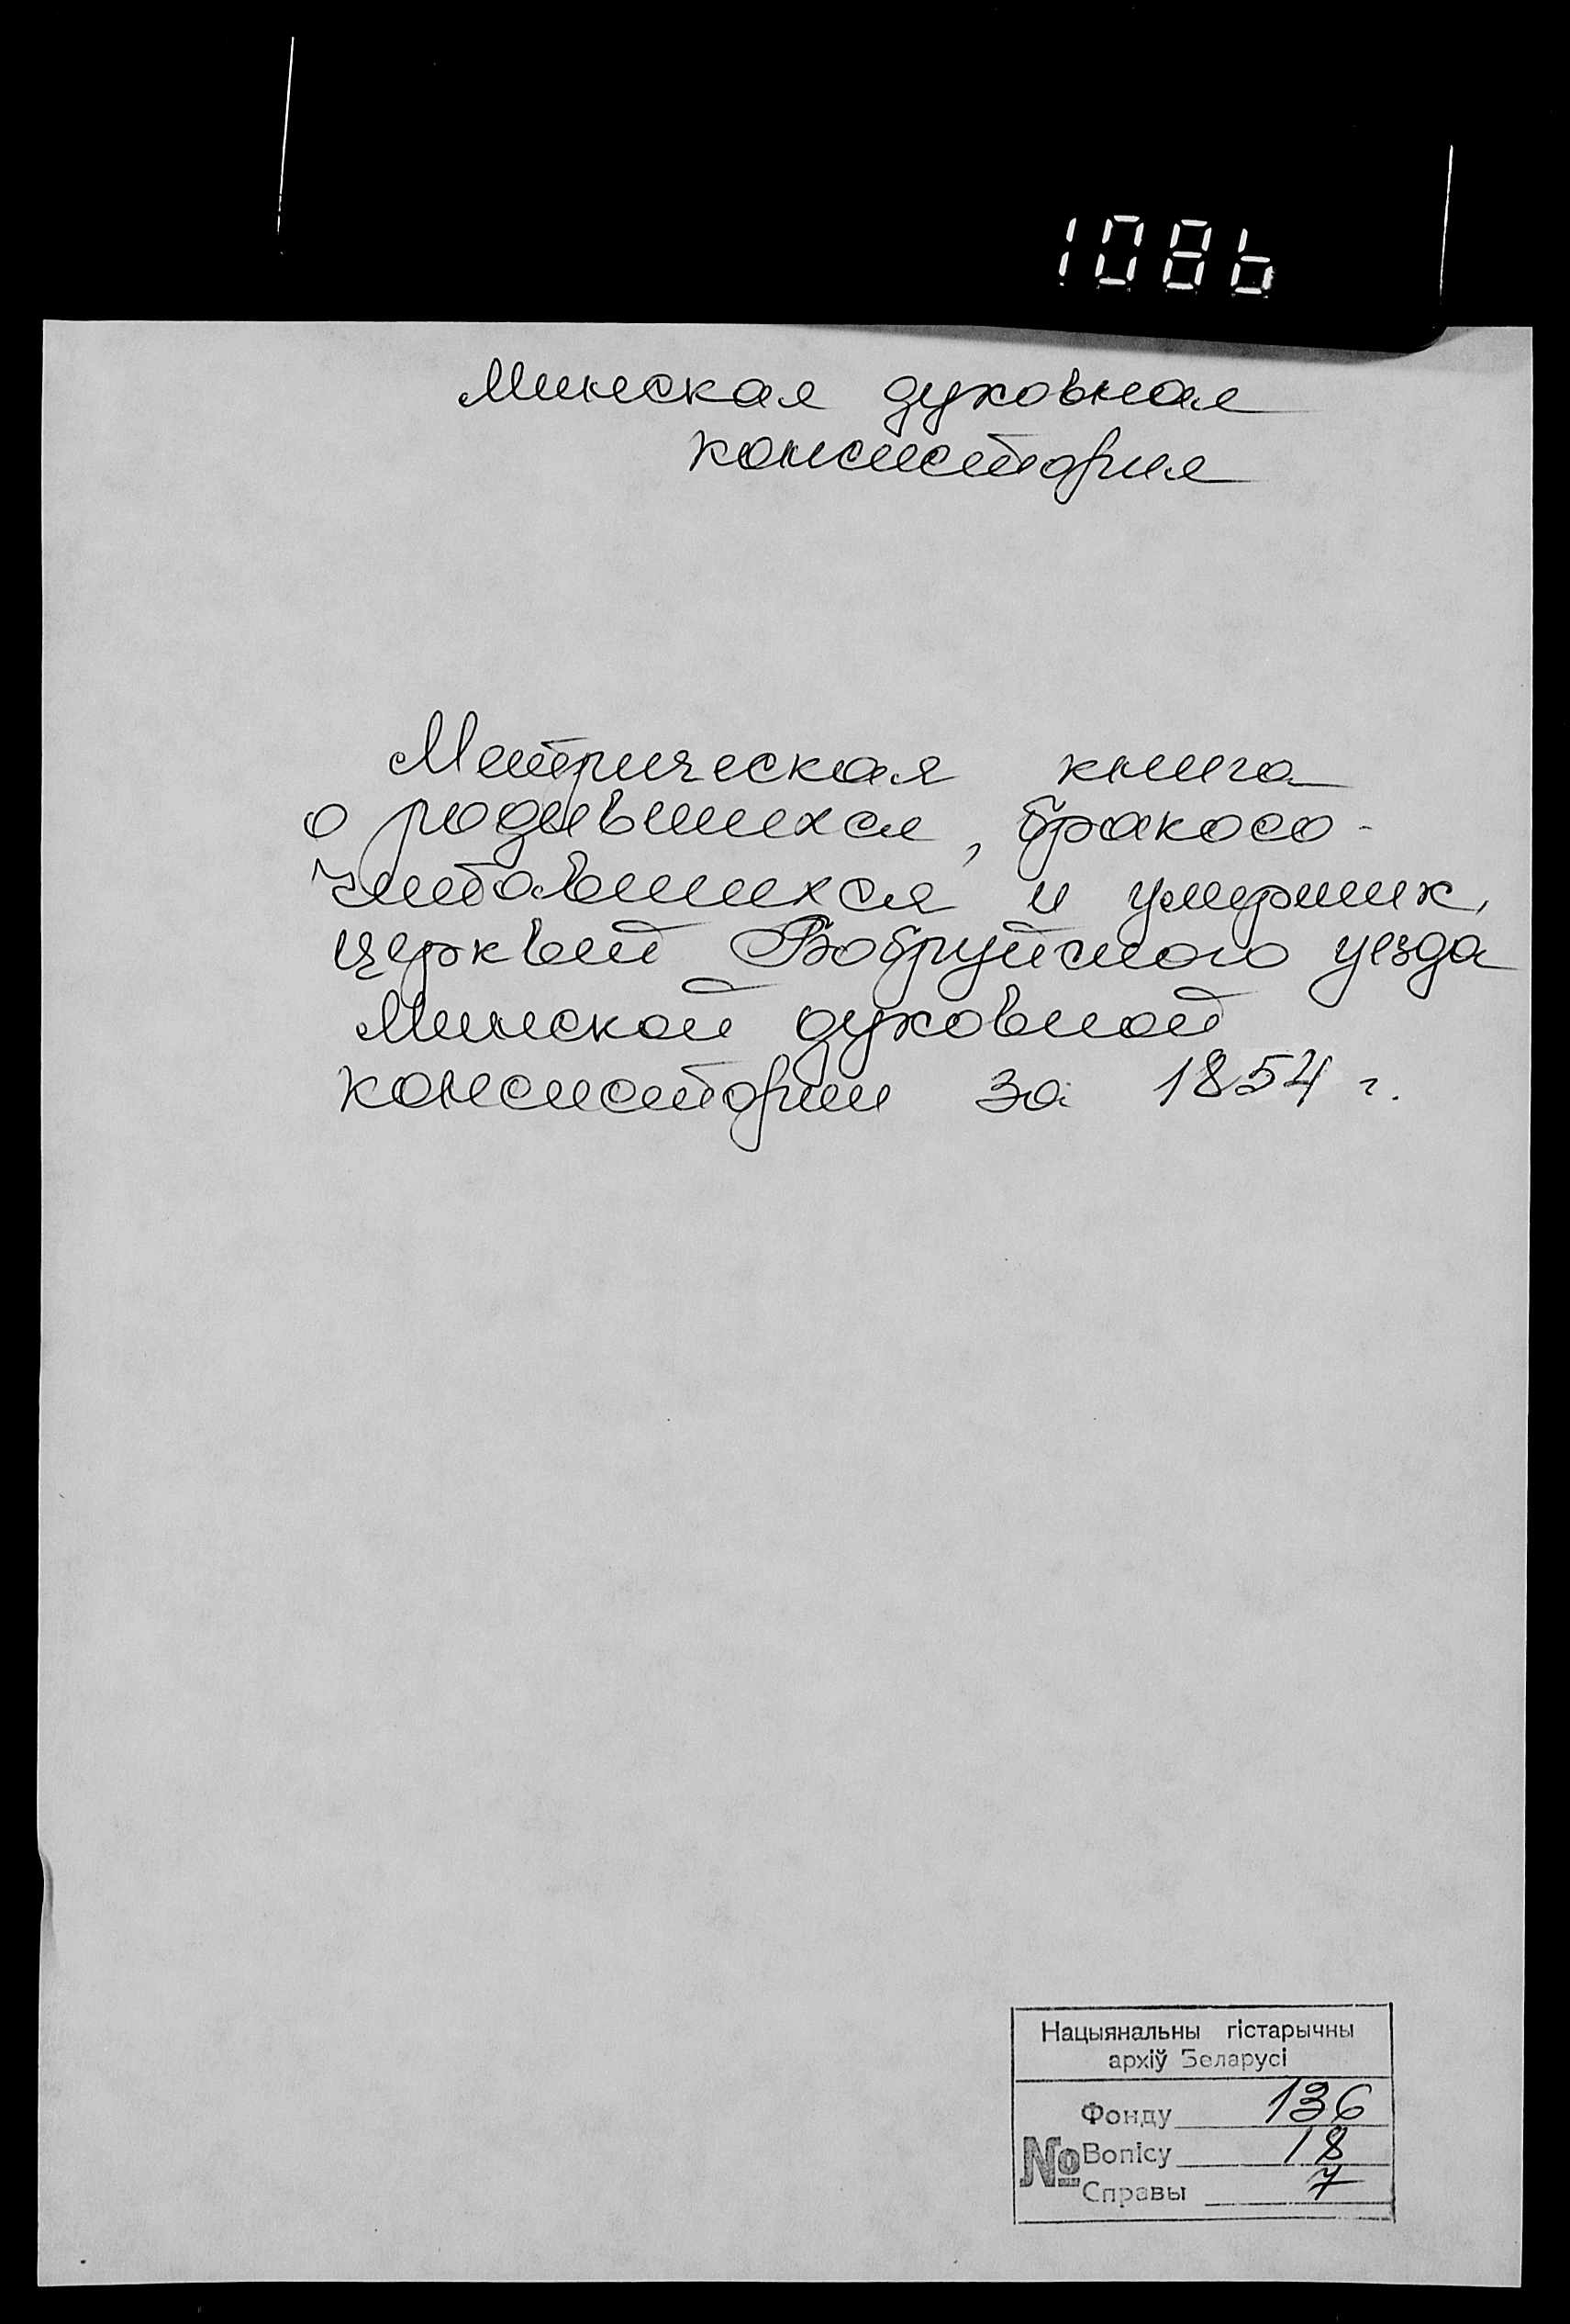 1086
Минская духовная
консистория
Метрическая книга
о родившихся, бракосо-
читавшихся и умерших,
церквей Бобруйского уезда
Минской духовной
консистории за 1854 г.
Нацыянальны гістарычны
архіў Беларусі
Фонду 136
№ Вопісу 18
Справы 7